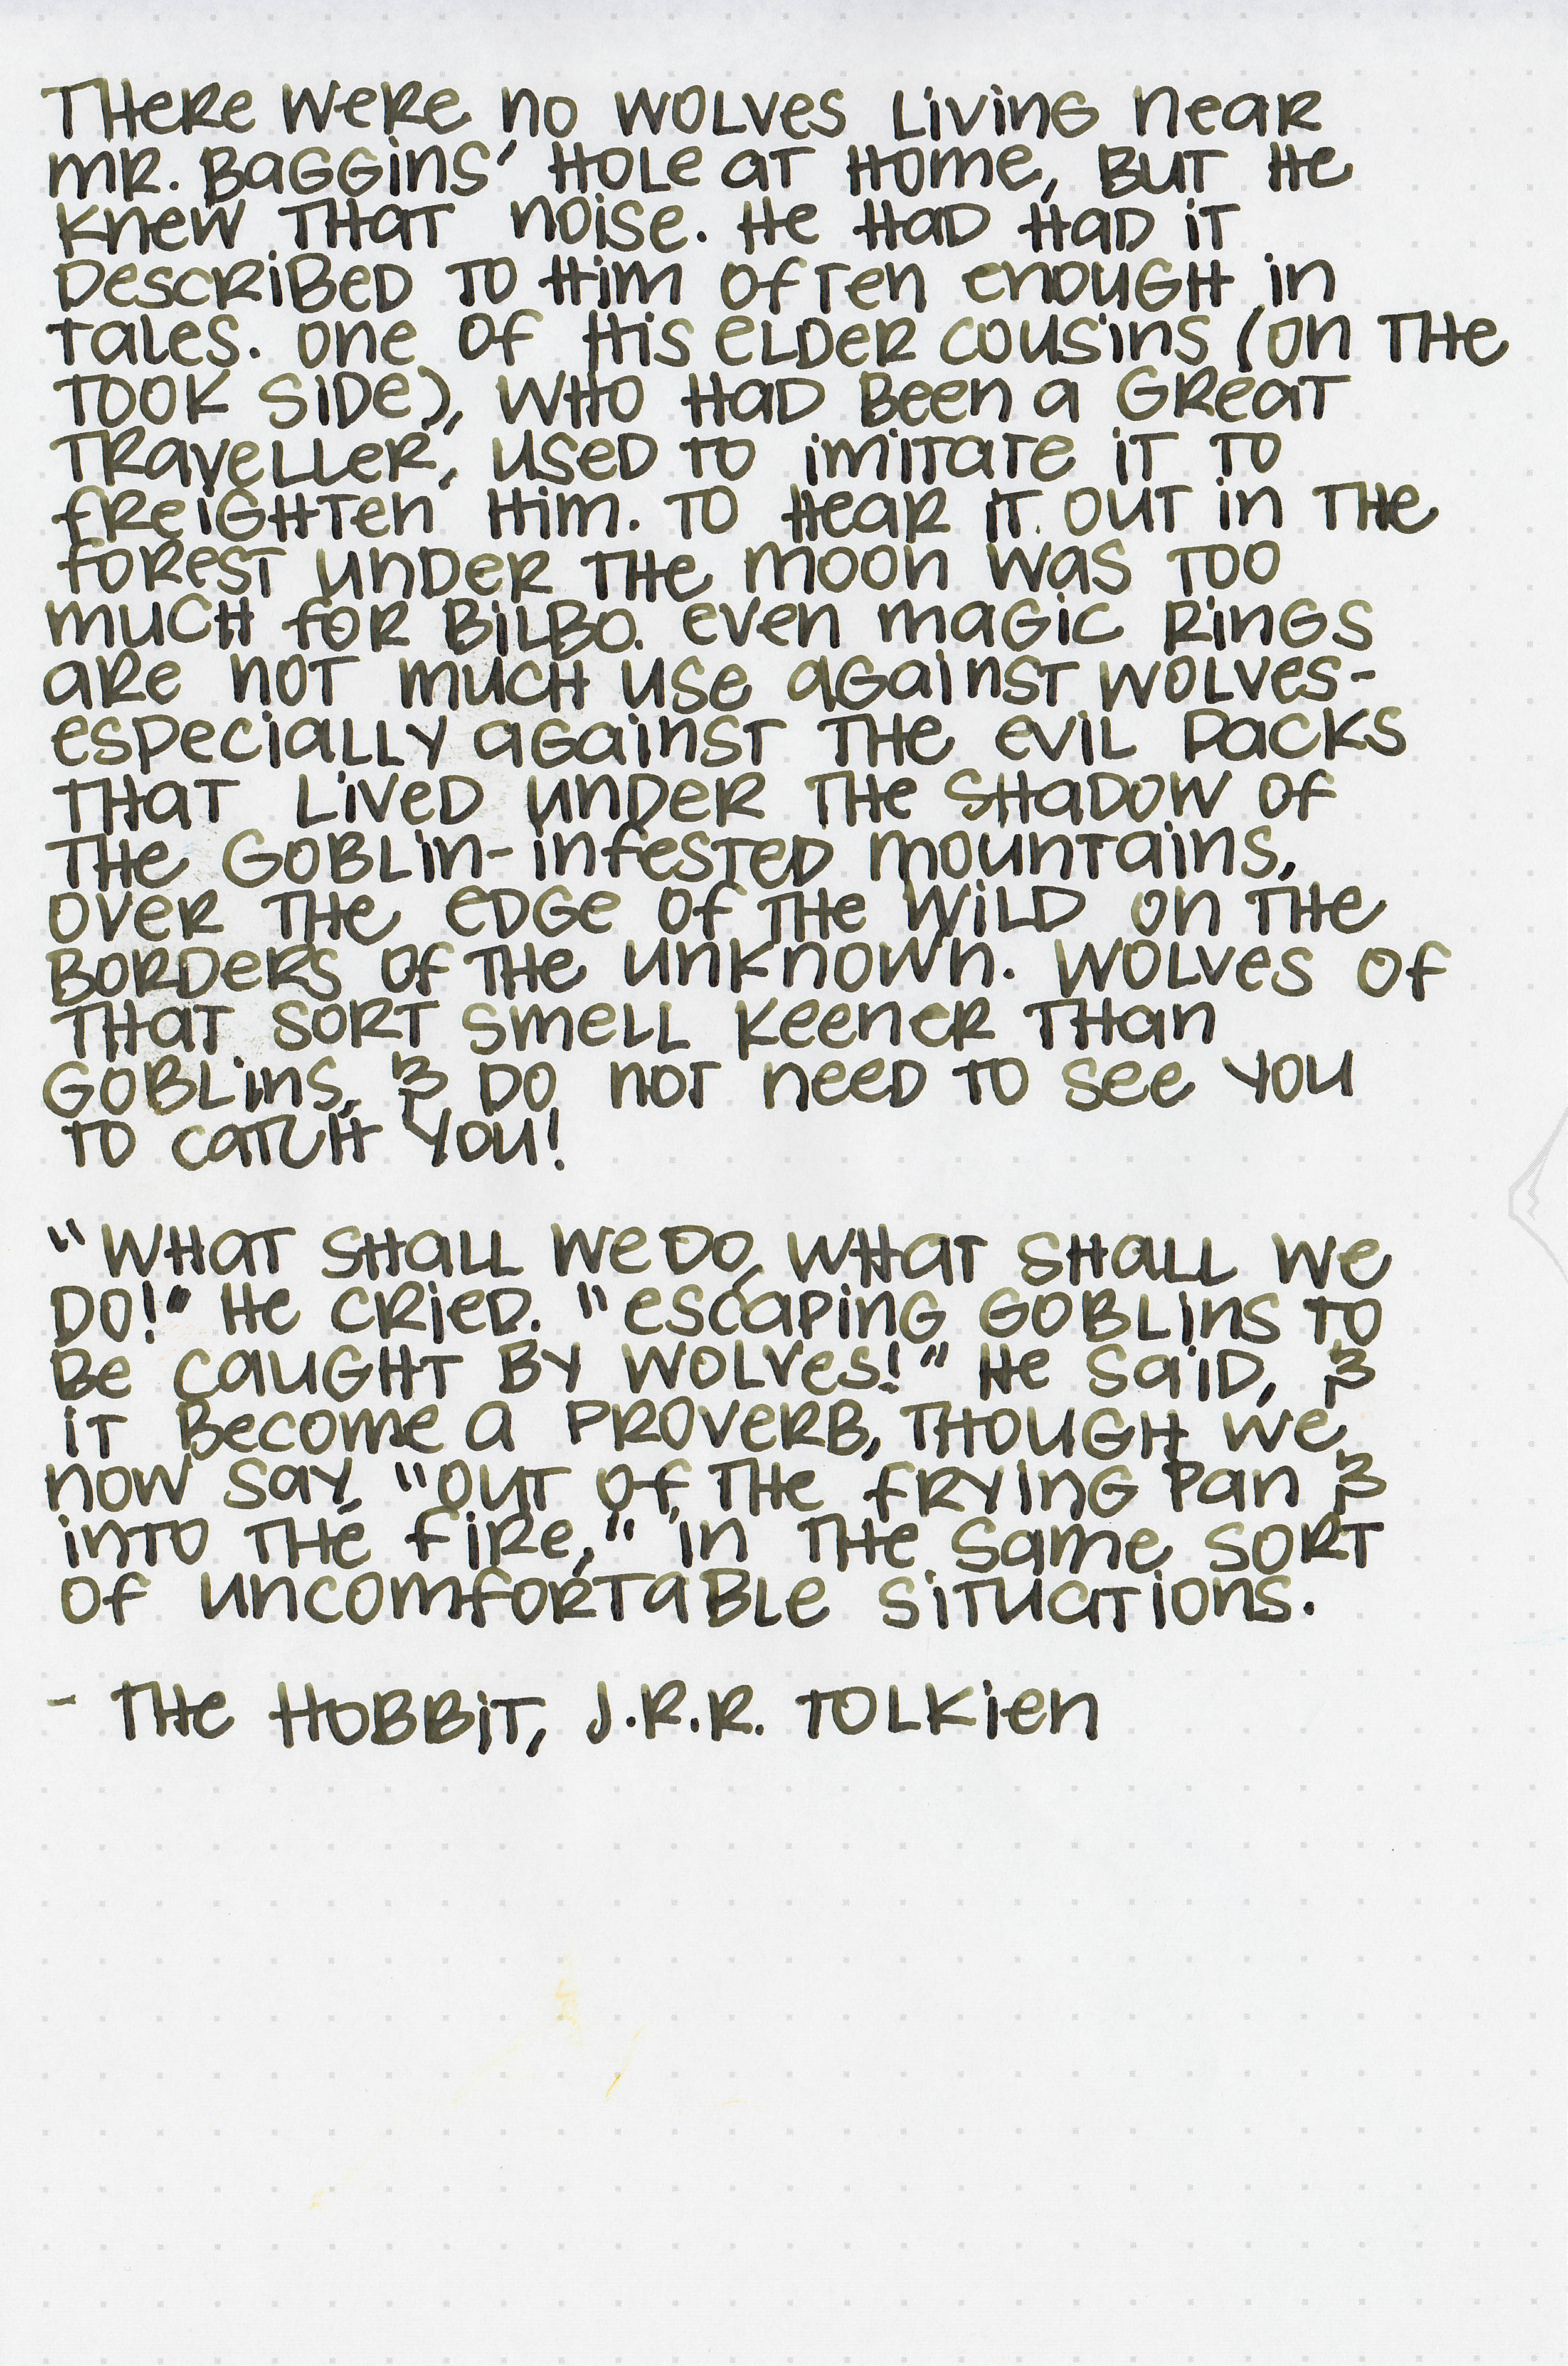 There were no wolves living near
Mr. Baggins' hole at home, but he
knew that noise. He had had it
described to him often enough in
tales. One of his elder cousins (on the
Took side), who had been a great
traveller, used to imitate it to
freighten him. To hear it out in the
forest under the moon was too
much for Bilbo. Even magic rings
are not much use against wolves-
especially against the evil packs
that lived under the shadow of
the goblin-infested mountains,
over the edge of the wild on the
borders of the unknown. Wolves of
that sort smell keener than
goblins, & do not need to see you
to catch you!
"What shall we do, what shall we
do!" he cried. "Escaping goblins to
be caught by wolves!" he said, &
it become a proverb, though we
now say, "out of the frying pan &
into the fire," in the same sort
of uncomfortable situations.
- The Hobbit, J.R.R. Tolkien